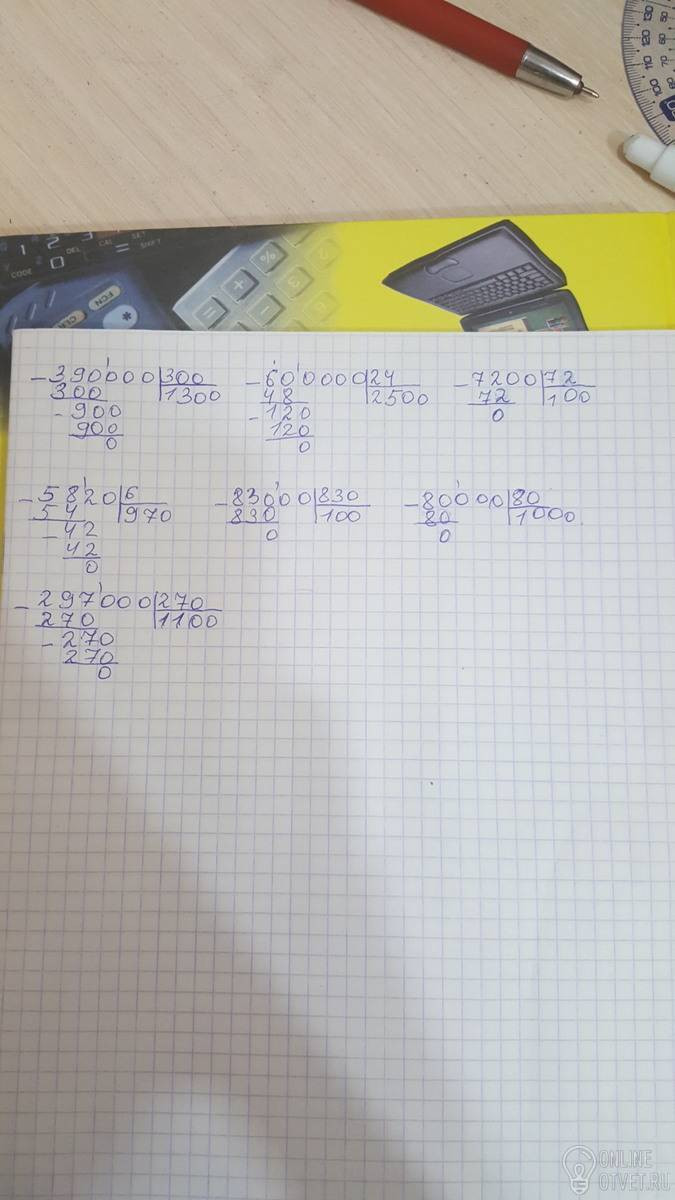 130
120
110
100
1 2 3 DEL CAL SET
CODE 0 = SHIFT
FCN
%
+
*
- 390000 |300 - 600000 |24 - 7200 |72
300 1300 48 2500 72 100
- 900 - 120 0
900 120
0 0
- 5820 |6 - 83000 |830 - 80000 |80
54 970 830 100 80 1000
- 42 0 0
42
0
- 297000 |270
270 1100
- 270
270
0
ONLINE
OTVET.RU